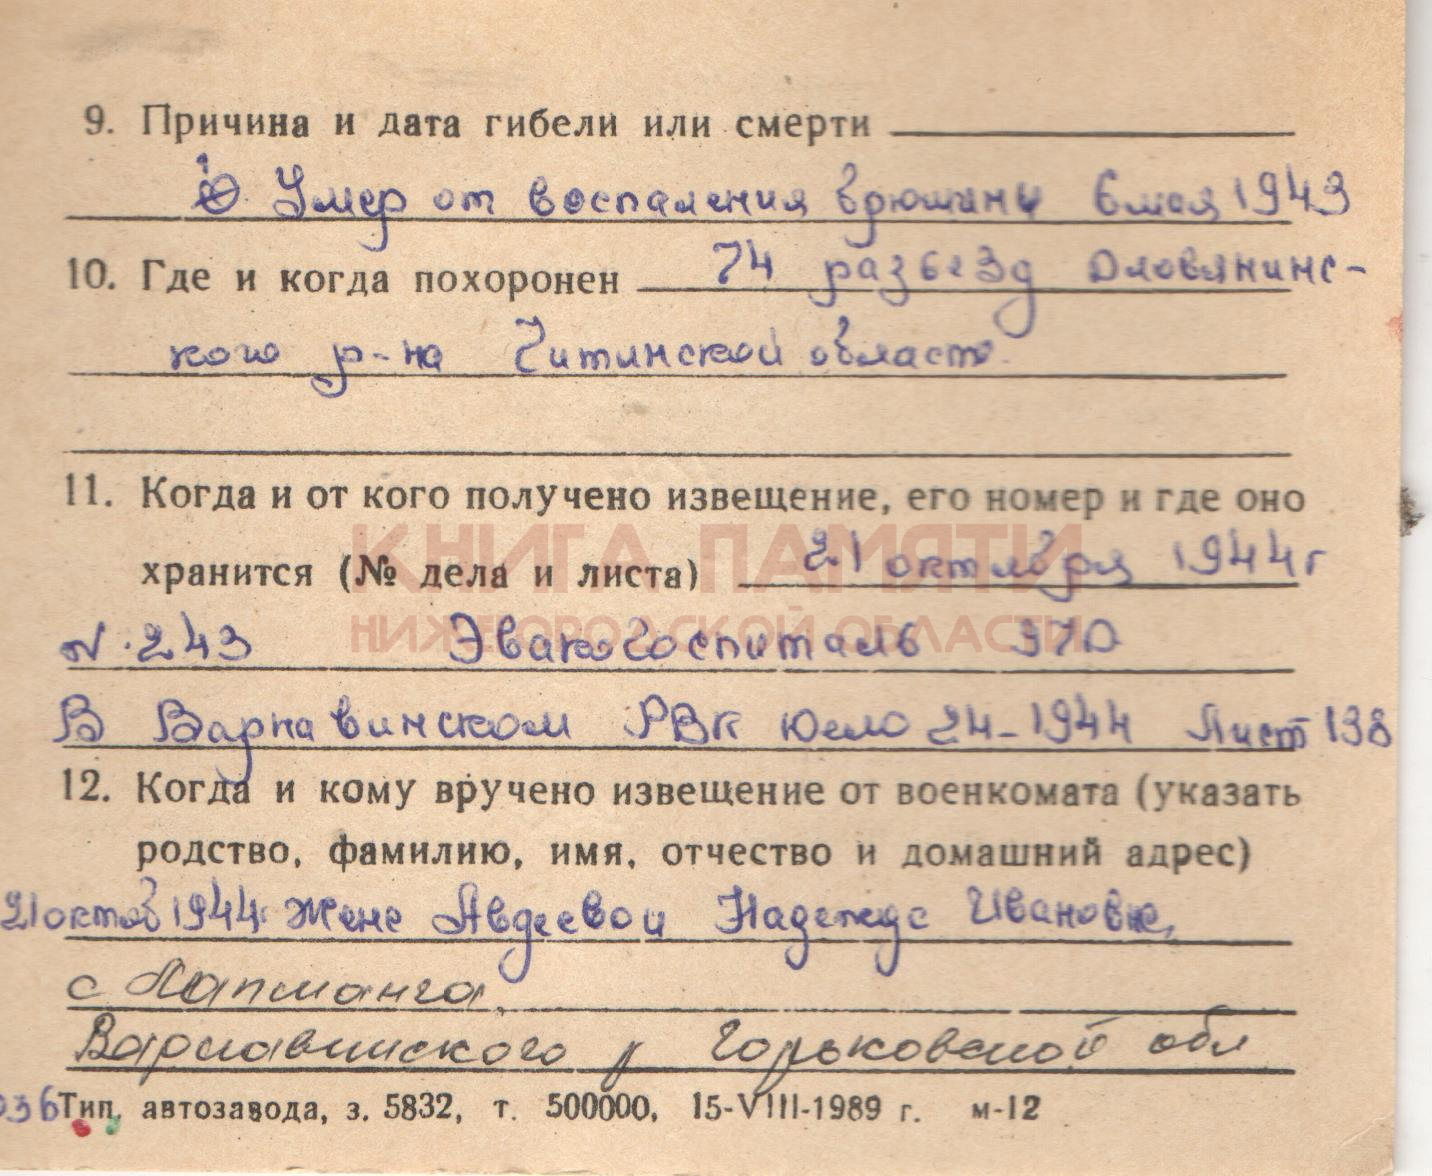 9. Причина и дата гибели или смерти
Умер от воспаления брюшины 6 мая 1943
10. Где и когда похоронен 74 разъезд Оловянинс-
кого р-на Читинской области
11. Когда и от кого получено извещение, его номер и где оно
КНИГА ПАМЯТИ
хранится (№ дела и листа) 21 октября 1944 г
НИЖЕГОРОДСКОЙ ОБЛАСТИ
N. 243 Эвакогоспиталь 370
В Варнавинском РВК дело 24-1944 Лист 138
12. Когда и кому вручено извещение от военкомата (указать
родство, фамилию, имя, отчество и домашний адрес)
21 октяб 1944 Жене Авдеевой Надежде Ивановне,
с Лапшанга,
Варнавинского р Горьковской обл
36 Тип. автозавода, з. 5832, т. 500000, 15-VIII-1989 г. м-12